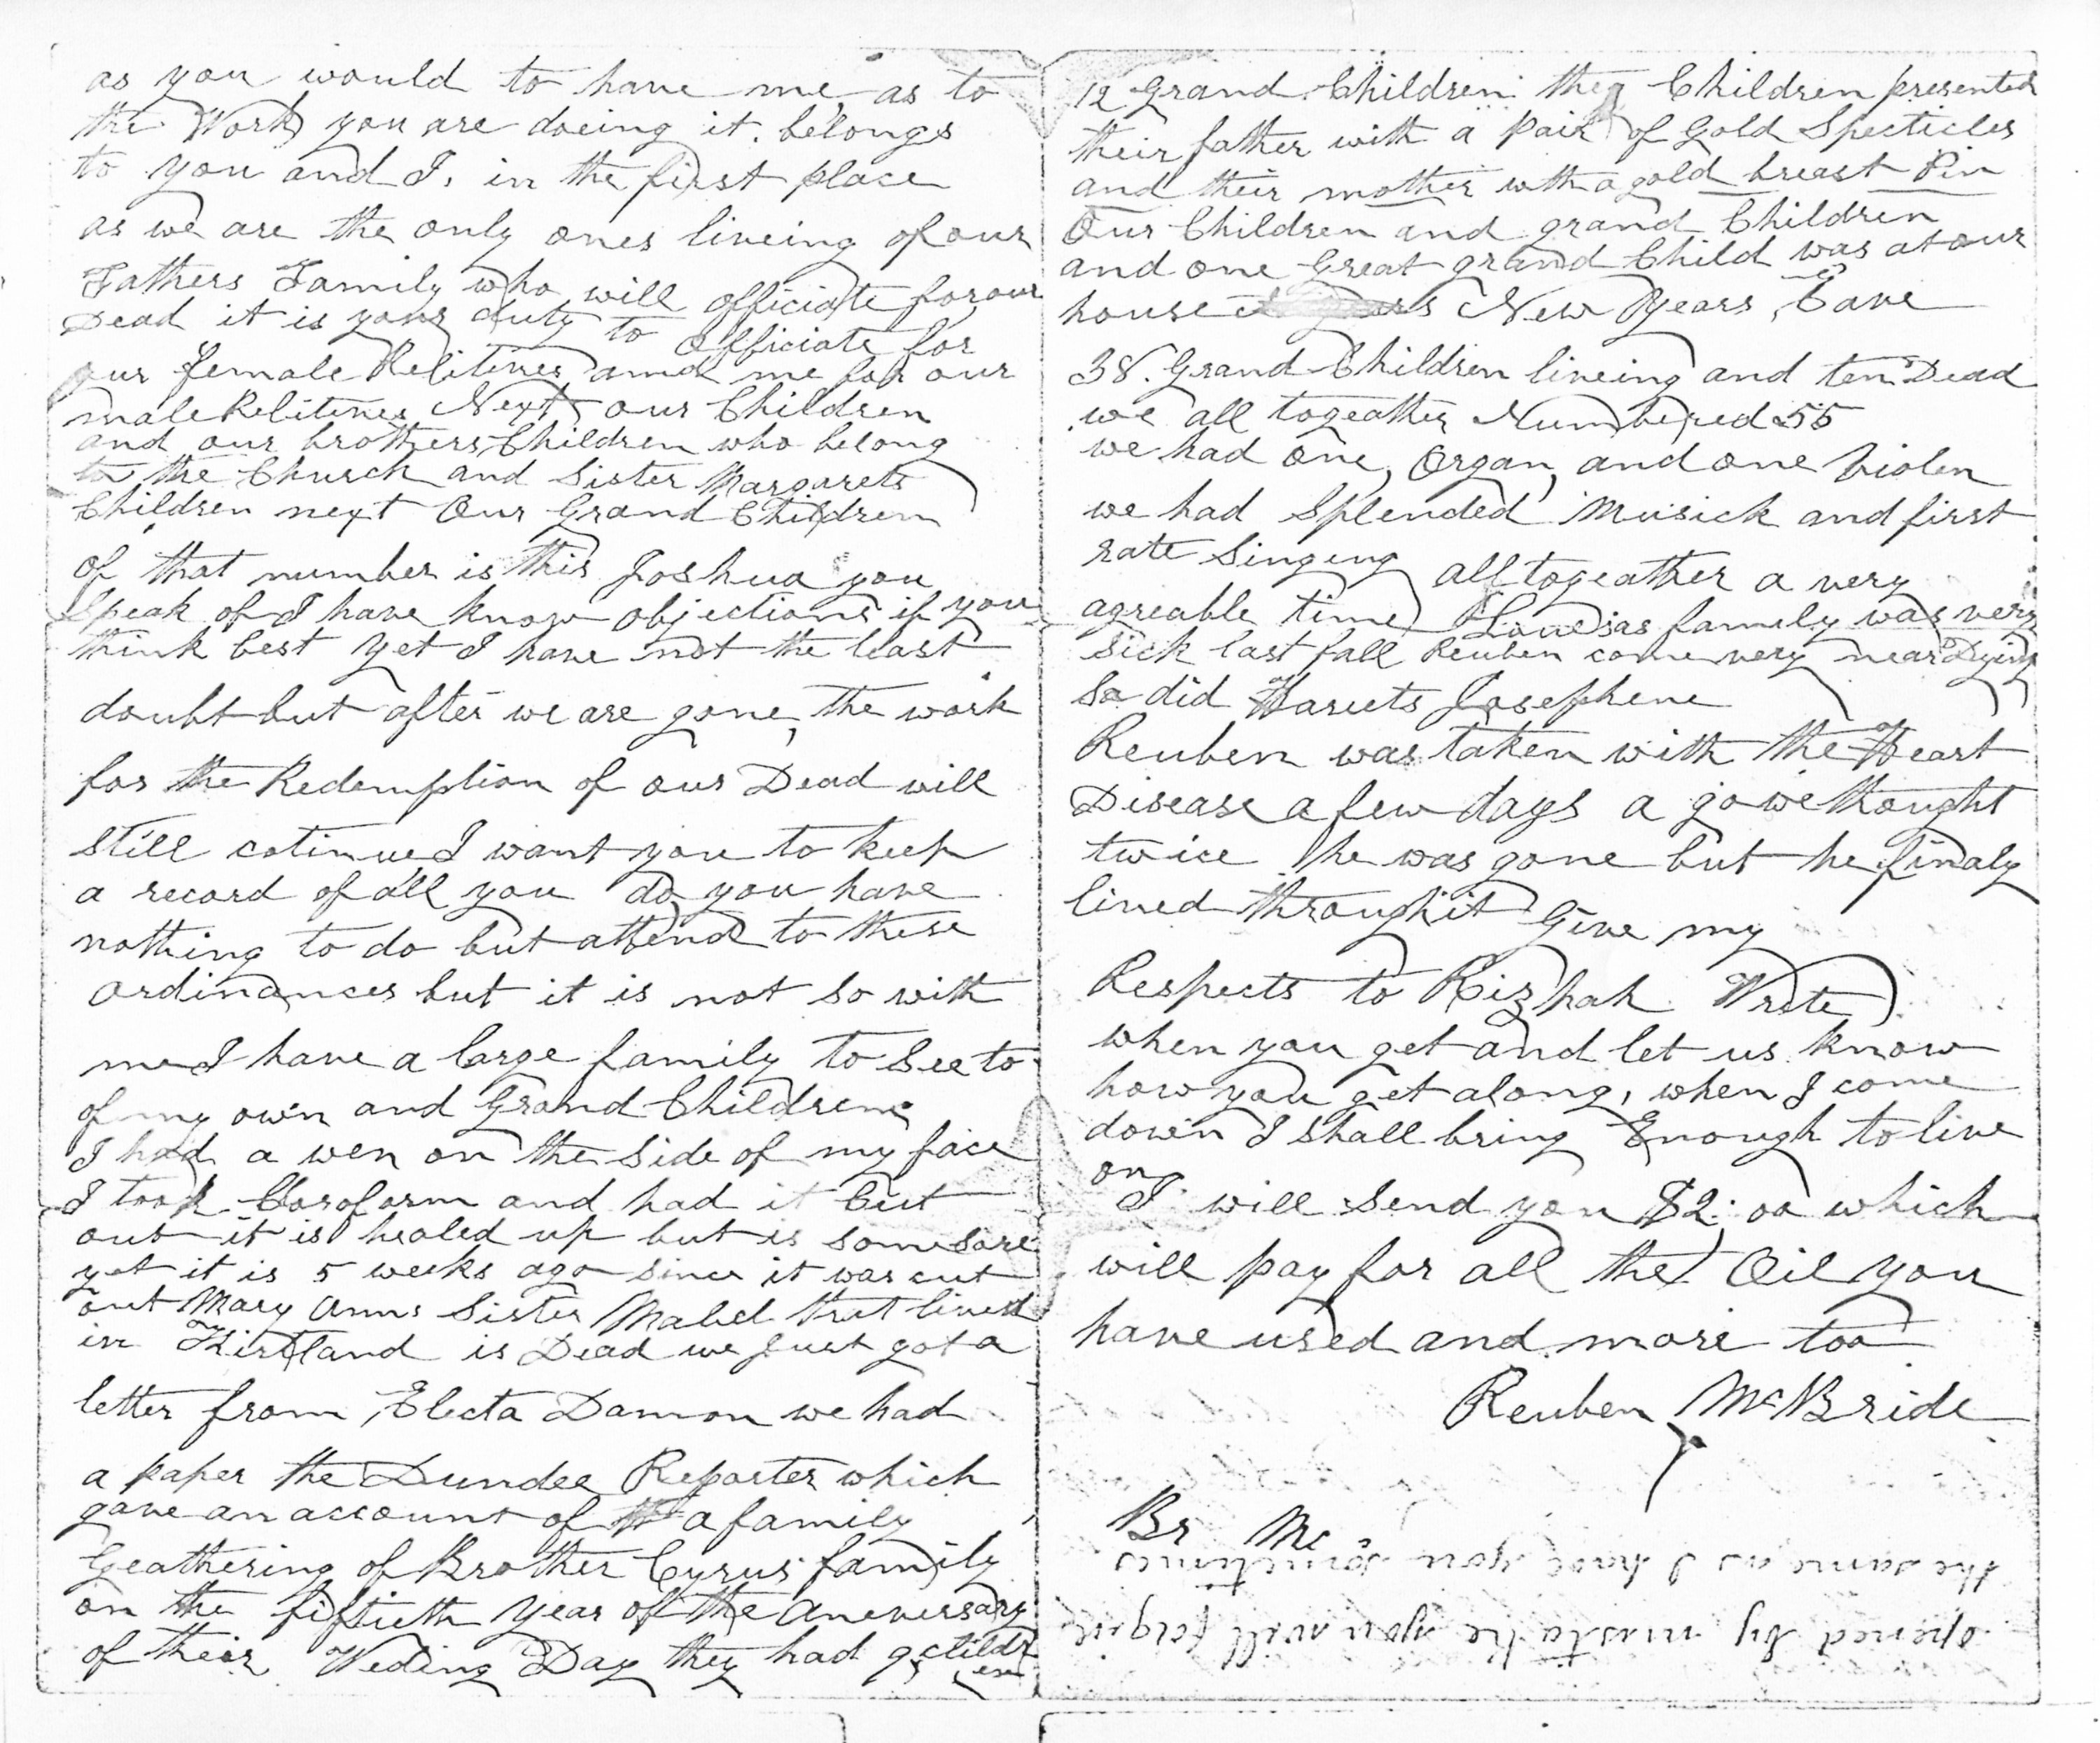 as you would to have me, as to
the Work you are doeing it. belongs
to you and I, in the first place
as we are the only ones liveing of our
Fathers Family who will officiate for our
Dead it is your duty to officiate for
our female Relitives and me for our
male Relitives Next our Children
and our brothers Children who belong
to the Church and Sister Margarets
Children next Our Grand Children
of that number is this Joshua you
Speak of I have know objections if you
think best yet I have not the least
doubt but after we are gone, the work
for the Redemption of our Dead will
still cotinue, I want you to keep
a record of all you do you have
nothing to do but attend to these
ordinances but it is not so with
me I have a large family to See to
of my own and Grand Children
I had a wen on the Side of my face
I took Cloroform and had it Cut
out it is healed up but is some sore
yet it is 5 weeks ago since it was cut
out Mary Anns Sister Mabel that lived
in Kirtland is Dead we Just got a
letter from Electa Damon we had
a paper the Dundee Reporter which
gave an account of a family
Geathering of Brother Cyrus family
on the fiftieth year of the aneversary
of their Weding Day they had 9 children
12 Grand Children they Children presented
their father with a pair of Gold Specticles
and their mother with a gold breast Pin
Our Children and grand Children
and one Great grand Child was at our
house New Years Eave
38. Grand Children liveing and ten Dead
we all togeather Numbered 55
we had one, Organ, and one Violen
we had Splended Musick and first
rate Singing all togeather a very
agreable time Lovesas family was very
Sick last fall Reuben come very near Dying
So did Hariets Josephene
Reuben was taken with the Heart
Disease a few days a go we thought
twice he was gone but he finaly
lived through it Give my
Respects to Rizpah Write
when you get and let us know
how you get along, when I come
down I shall bring Enough to live
on
I will Send you $2.00 which
will pay for all the Oil you
have used and more too
Reuben McBride
Br Mc
opened by mistake you will forgive
the same as I have you sometimes